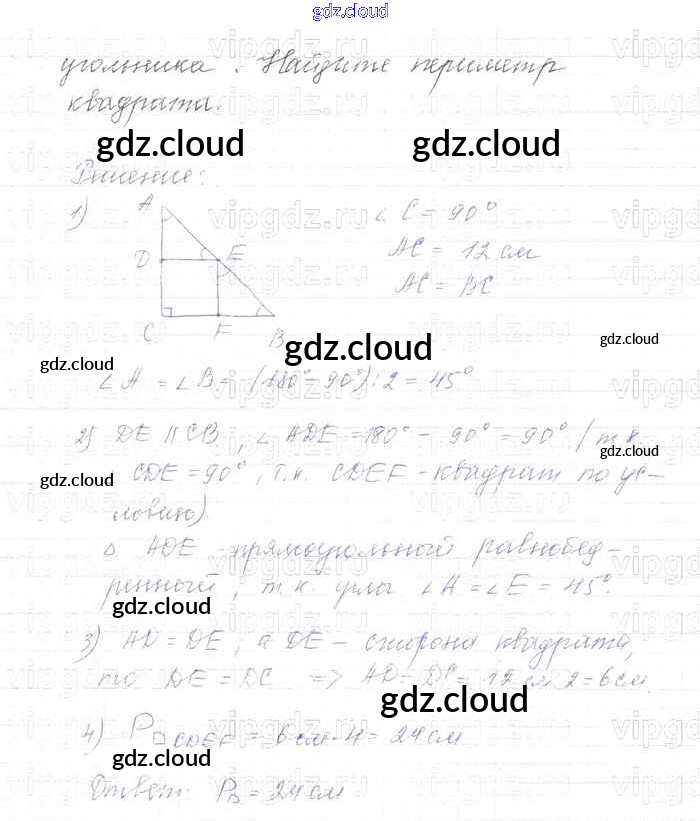 gdz.cloud
угольника. Найдите периметр
квадрата.
gdz.cloud gdz.cloud
Решение:
1) A D E C F B
∠ C = 90°
AC = 12 см
AC = BC
gdz.cloud
gdz.cloud gdz.cloud
∠ A = ∠ B = (180° - 90°) : 2 = 45°
2) DE || CB, ∠ ADE = 180° - 90° = 90° (т.к.
gdz.cloud
∠ CDE = 90°, т.к. CDEF - квадрат по ус-
gdz.cloud
ловию).
Δ ADE - прямоугольный равнобед-
ренный, т.к. углы ∠ A = ∠ E = 45°.
gdz.cloud
3) AD = DE, а DE - сторона квадрата,
то DE = DC => AD = DC = 12 см : 2 = 6 см.
gdz.cloud
4) P□CDEF = 6 см · 4 = 24 см
gdz.cloud
Ответ: P□ = 24 см